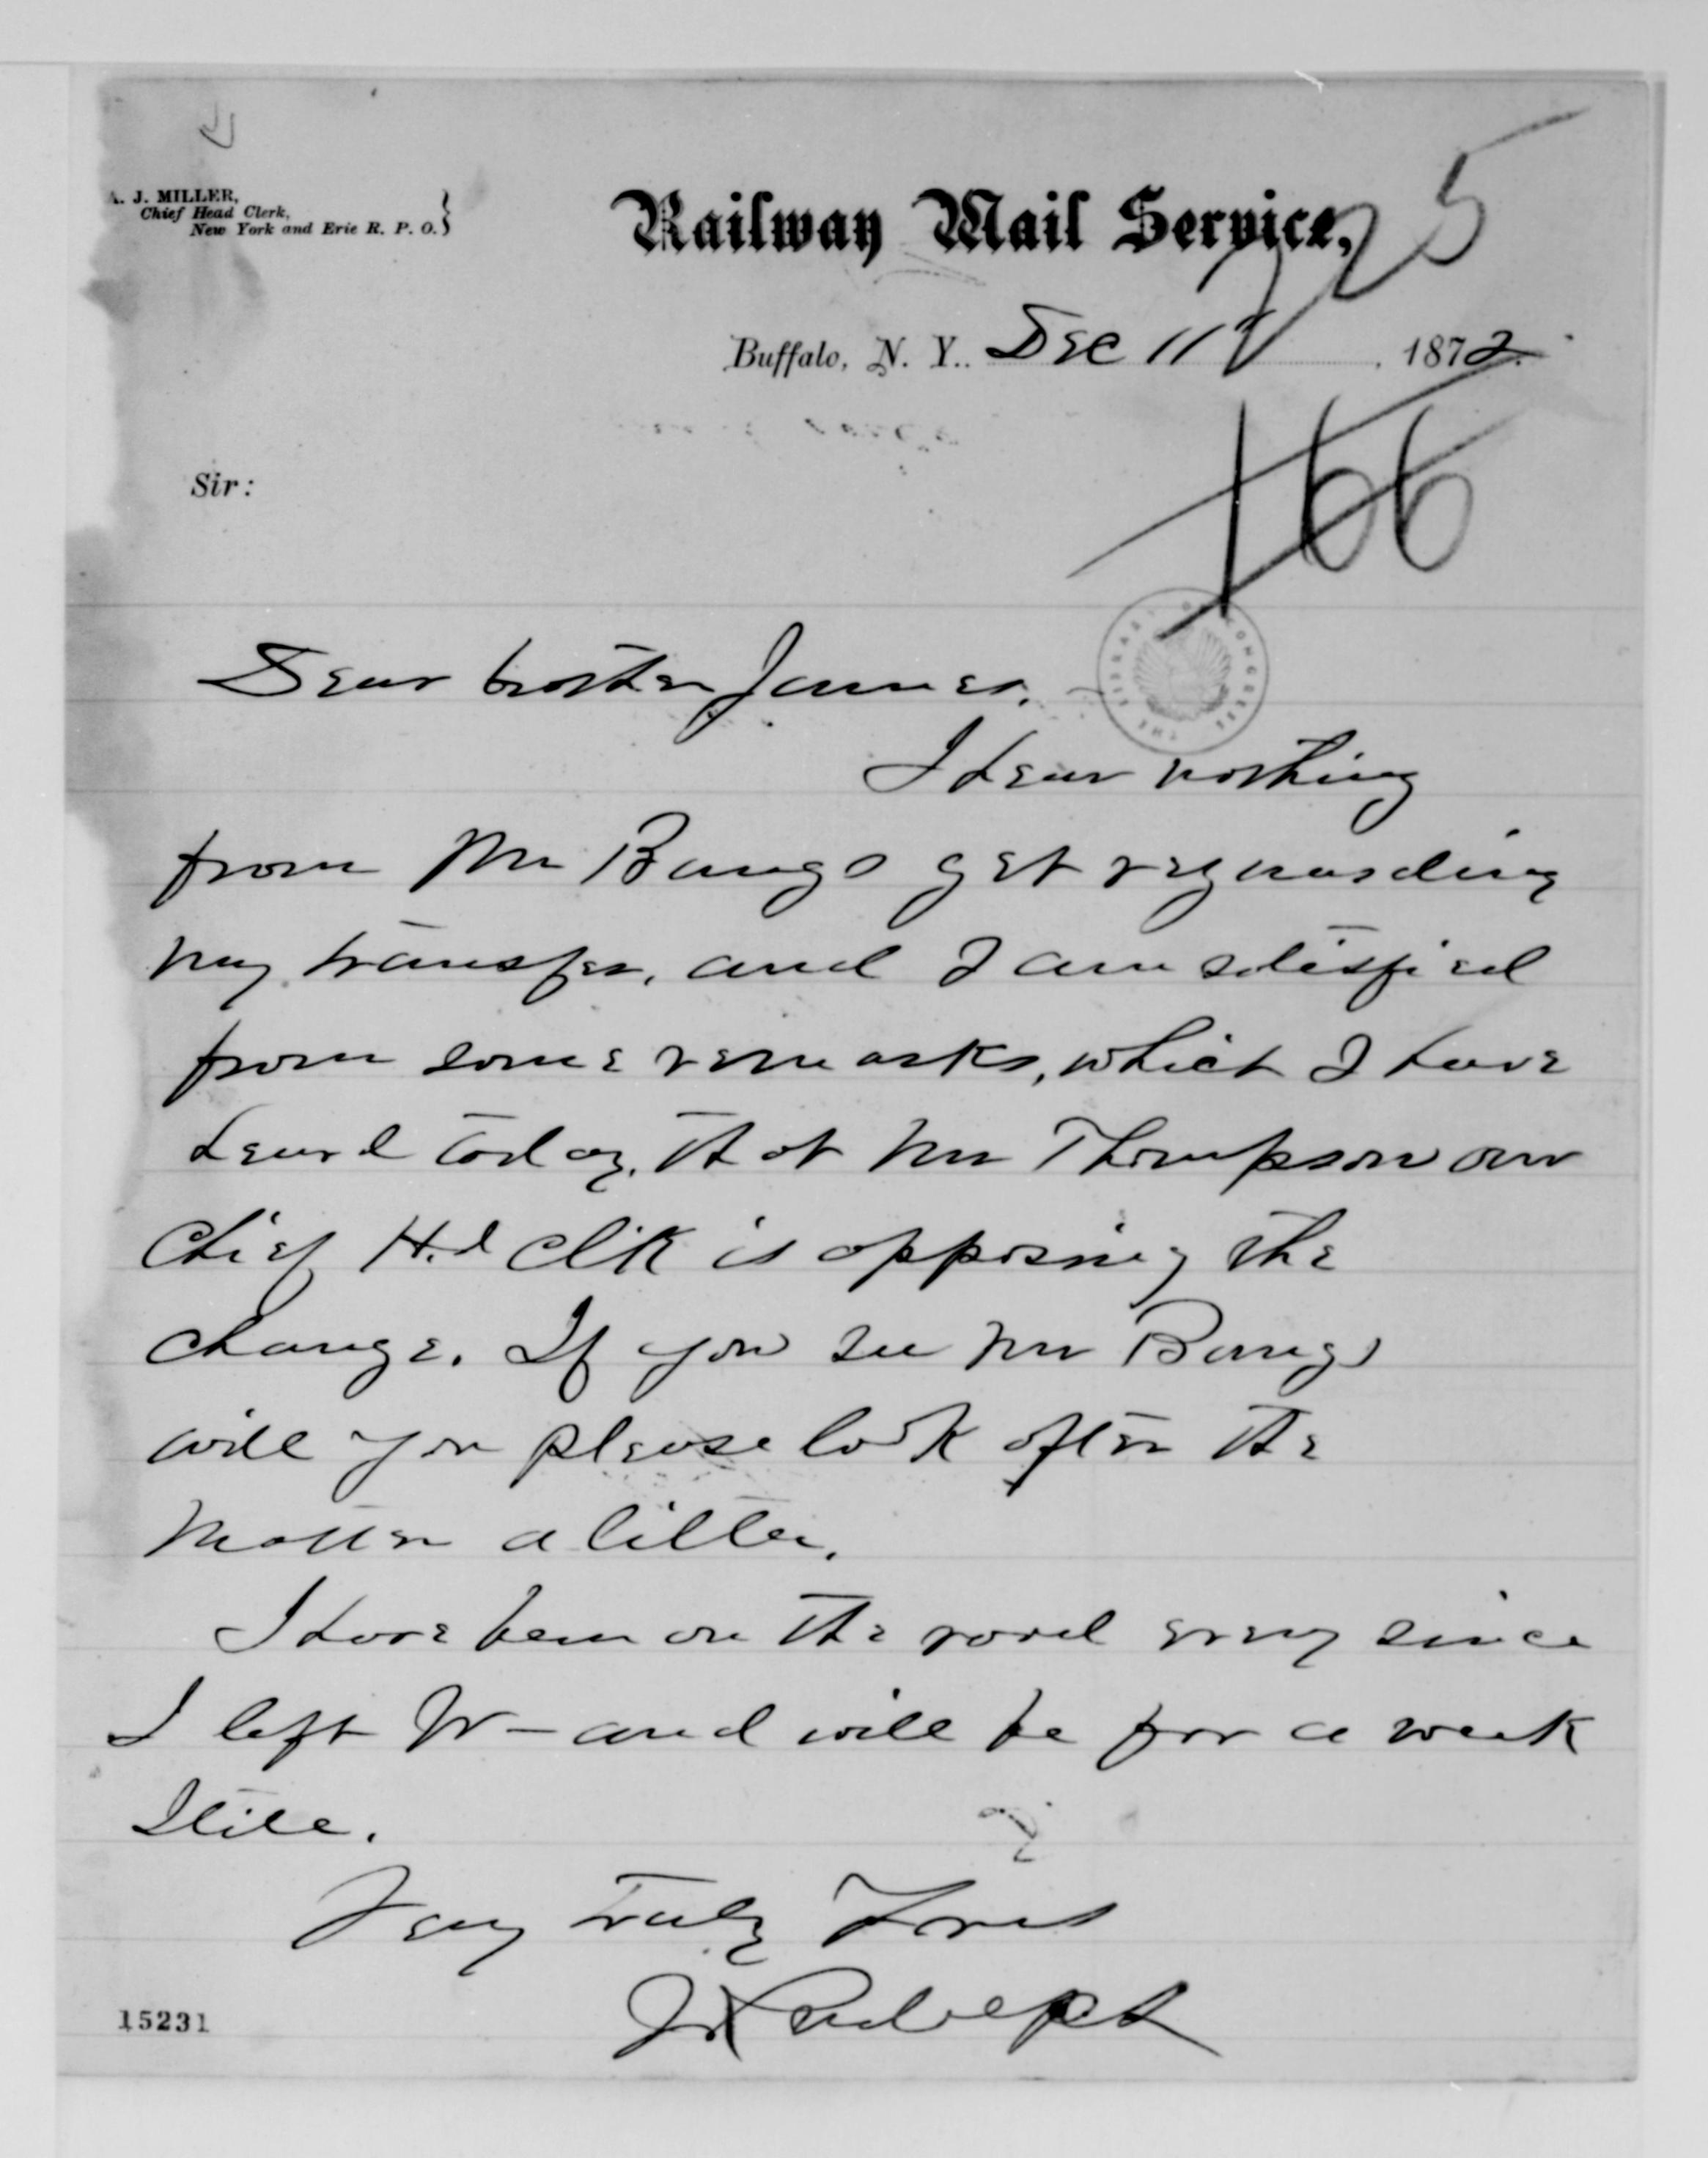 A. J. MILLER,
Chief Head Clerk,
New York and Erie R. P. O.
Railway Mail Service,
225
Buffalo, N. Y.. Dec 11 1872.
166
Sir:
THE LIBRARY OF CONGRESS
Dear brother James.
I hear nothing
from Mr Bangs yet regarding
my transfer, and I am satisfied
from some remarks, which I have
heard today, that Mr Thompson our
Chief H.d Clk is opposing the
change. If you see Mr Bangs
will you please look after the
matter a little.
I have been on the road every since
I left W— and will be for a week
still.
Very truly Yours
J Rudolph
15231